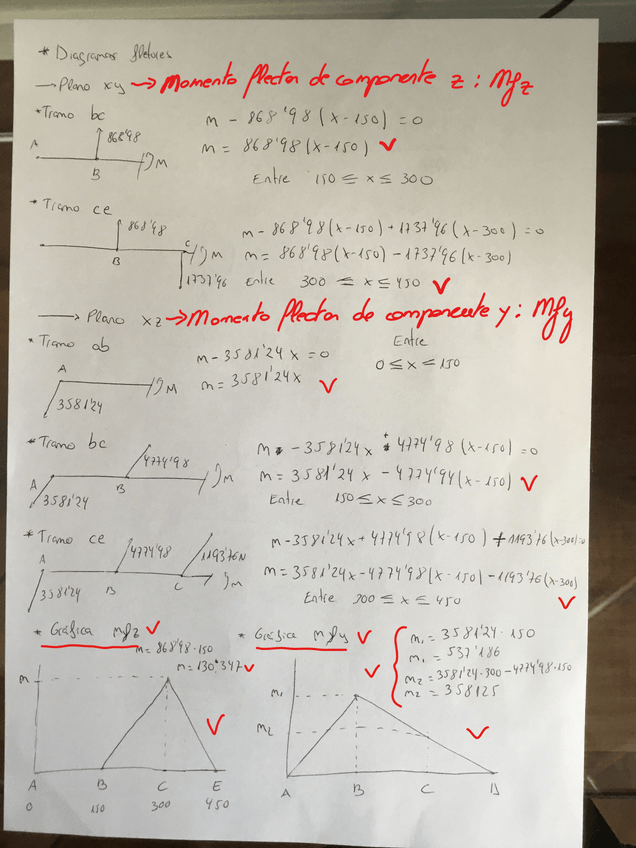 * Diagramas flectores
→ Plano xy → Momento flector de componente z : Mfz
* Tramo bc
m - 868'98 (x-150) = 0
868'98
m = 868'98 (x-150) ✓
A
B
M
Entre 150 ≤ x ≤ 300
* Tramo ce
868'98
m - 868'98 (x-150) + 1737'96 (x-300) = 0
B
C
M
m = 868'98 (x-150) - 1737'96 (x-300)
1737'96
Entre 300 ≤ x ≤ 450 ✓
→ Plano xz → Momento flector de componente y : Mfy
* Tramo ab
m - 3581'24 x = 0
Entre
A
m = 3581'24x ✓
0 ≤ x ≤ 150
M
3581'24
* Tramo bc
4774'98
m - 3581'24 x + 4774'98 (x-150) = 0
A
B
M
m = 3581'24 x - 4774'94 (x-150) ✓
3581'24
Entre 150 ≤ x ≤ 300
* Tramo ce
4774'98
1193'76N
m - 3581'24x + 4774'98 (x-150) + 1193'76 (x-300)=0
A
B
C
M
m = 3581'24x - 4774'98 (x-150) - 1193'76 (x-300)
3581'24
Entre 300 ≤ x ≤ 450 ✓
* Gráfica mfz ✓
m = 868'98 · 150
m = 130'347 ✓
m
A B C E
0 150 300 450
* Gráfica mfy ✓
m1 = 3581'24 · 150
m1 = 537'186
m2 = 3581'24·300 - 4774'98·150
m2 = 358125
m1
m2
A B C D